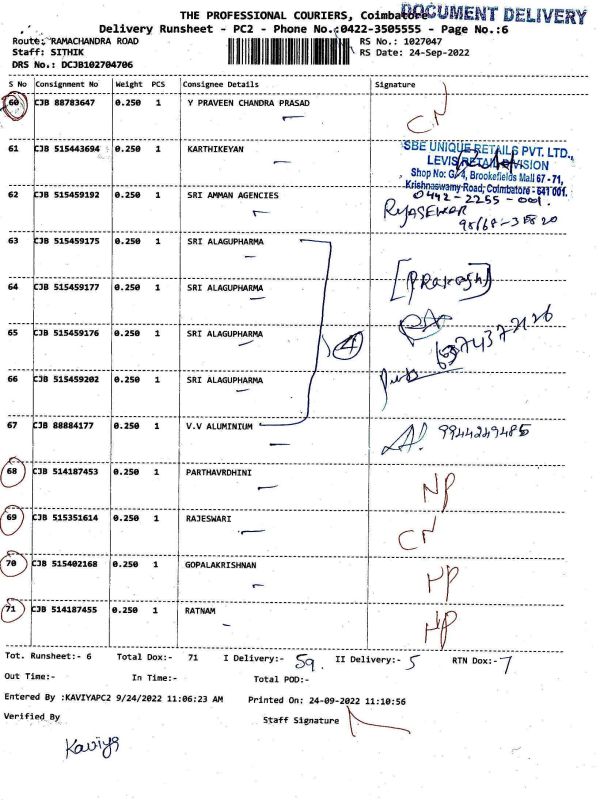 THE PROFESSIONAL COURIERS, Coimbatore
DOCUMENT DELIVERY
Delivery Runsheet - PC2 - Phone No.:0422-3505555 - Page No.:6
Route: RAMACHANDRA ROAD
RS No.: 1027047
Staff: SITHIK
RS Date: 24-Sep-2022
DRS No.: DCJB102704706
S No Consignment No Weight PCS Consignee Details Signature
60 CJB 88783647 0.250 1 Y PRAVEEN CHANDRA PRASAD CN
61 CJB 515443694 0.250 1 KARTHIKEYAN
SBE UNIQUE RETAILS PVT. LTD.,
LEVIS RETAIL DIVISION
Shop No: G/4, Brookefields Mall 67 - 71,
Krishnaswamy Road, Coimbatore - 641 001.
0442-2255-001.
62 CJB 515459192 0.250 1 SRI AMMAN AGENCIES
63 CJB 515459175 0.250 1 SRI ALAGUPHARMA
64 CJB 515459177 0.250 1 SRI ALAGUPHARMA [Prakash]
65 CJB 515459176 0.250 1 SRI ALAGUPHARMA 4
66 CJB 515459202 0.250 1 SRI ALAGUPHARMA
67 CJB 88884177 0.250 1 V.V ALUMINIUM 9944249485
68 CJB 514187453 0.250 1 PARTHAVRDHINI NP
69 CJB 515351614 0.250 1 RAJESWARI CN
70 CJB 515402168 0.250 1 GOPALAKRISHNAN HP
71 CJB 514187455 0.250 1 RATNAM HP
Tot. Runsheet:- 6 Total Dox:- 71 I Delivery:- 59 II Delivery:- 5 RTN Dox:- 7
Out Time:- In Time:- Total POD:-
Entered By :KAVIYAPC2 9/24/2022 11:06:23 AM Printed On: 24-09-2022 11:10:56
Verified By Staff Signature
Kaviya